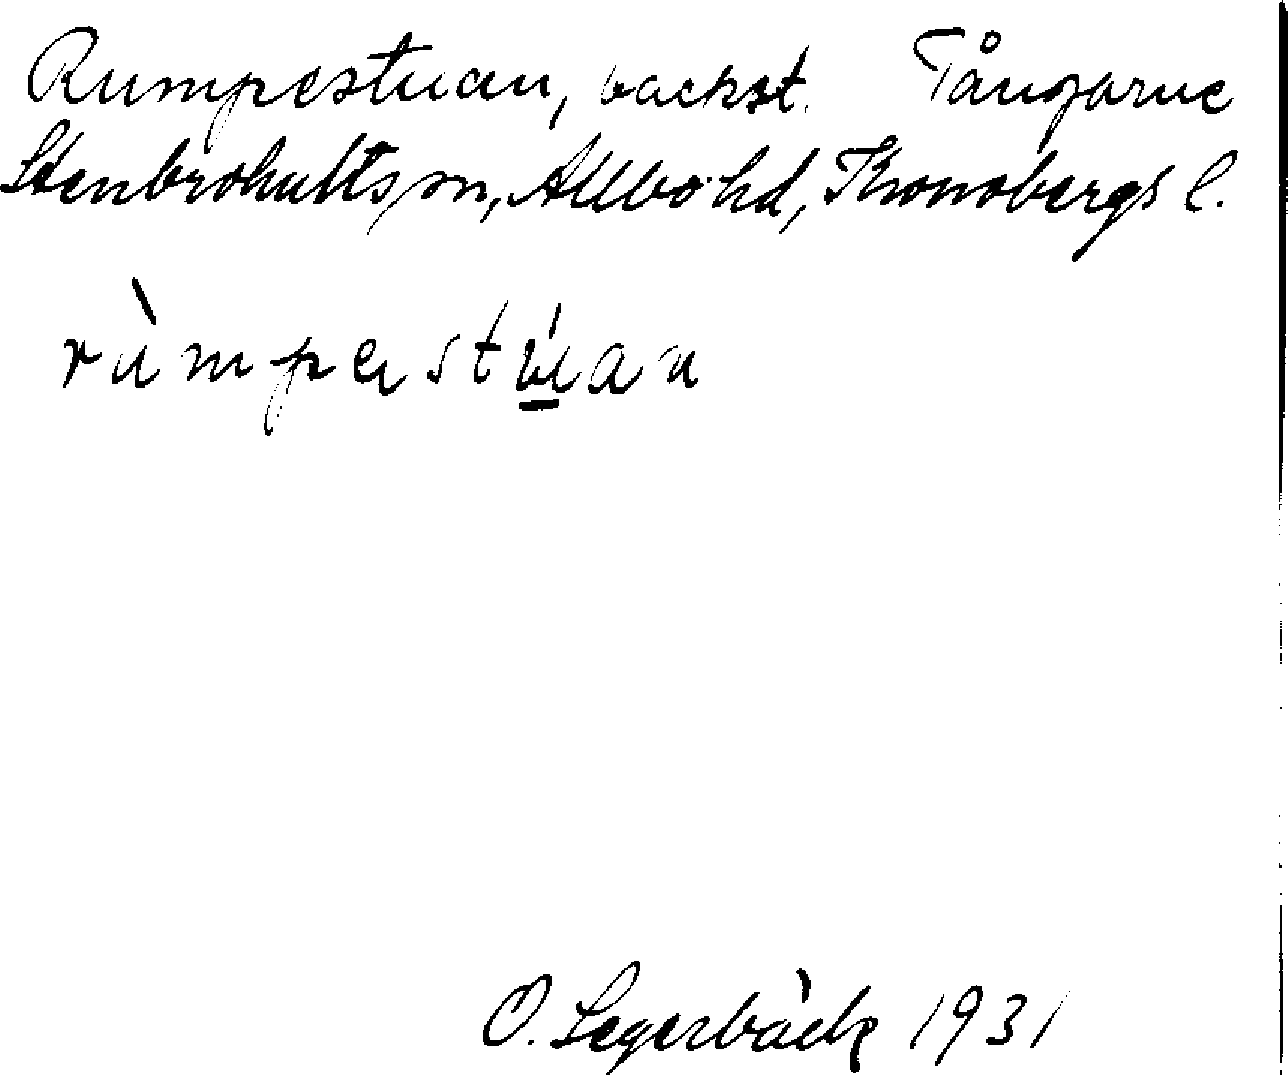 Rumpestuan, backst. Tångarne
Stenbrohults sn, Allbo hd, Kronobergs l.
rùmpestúan
O. Segerbäck 1931